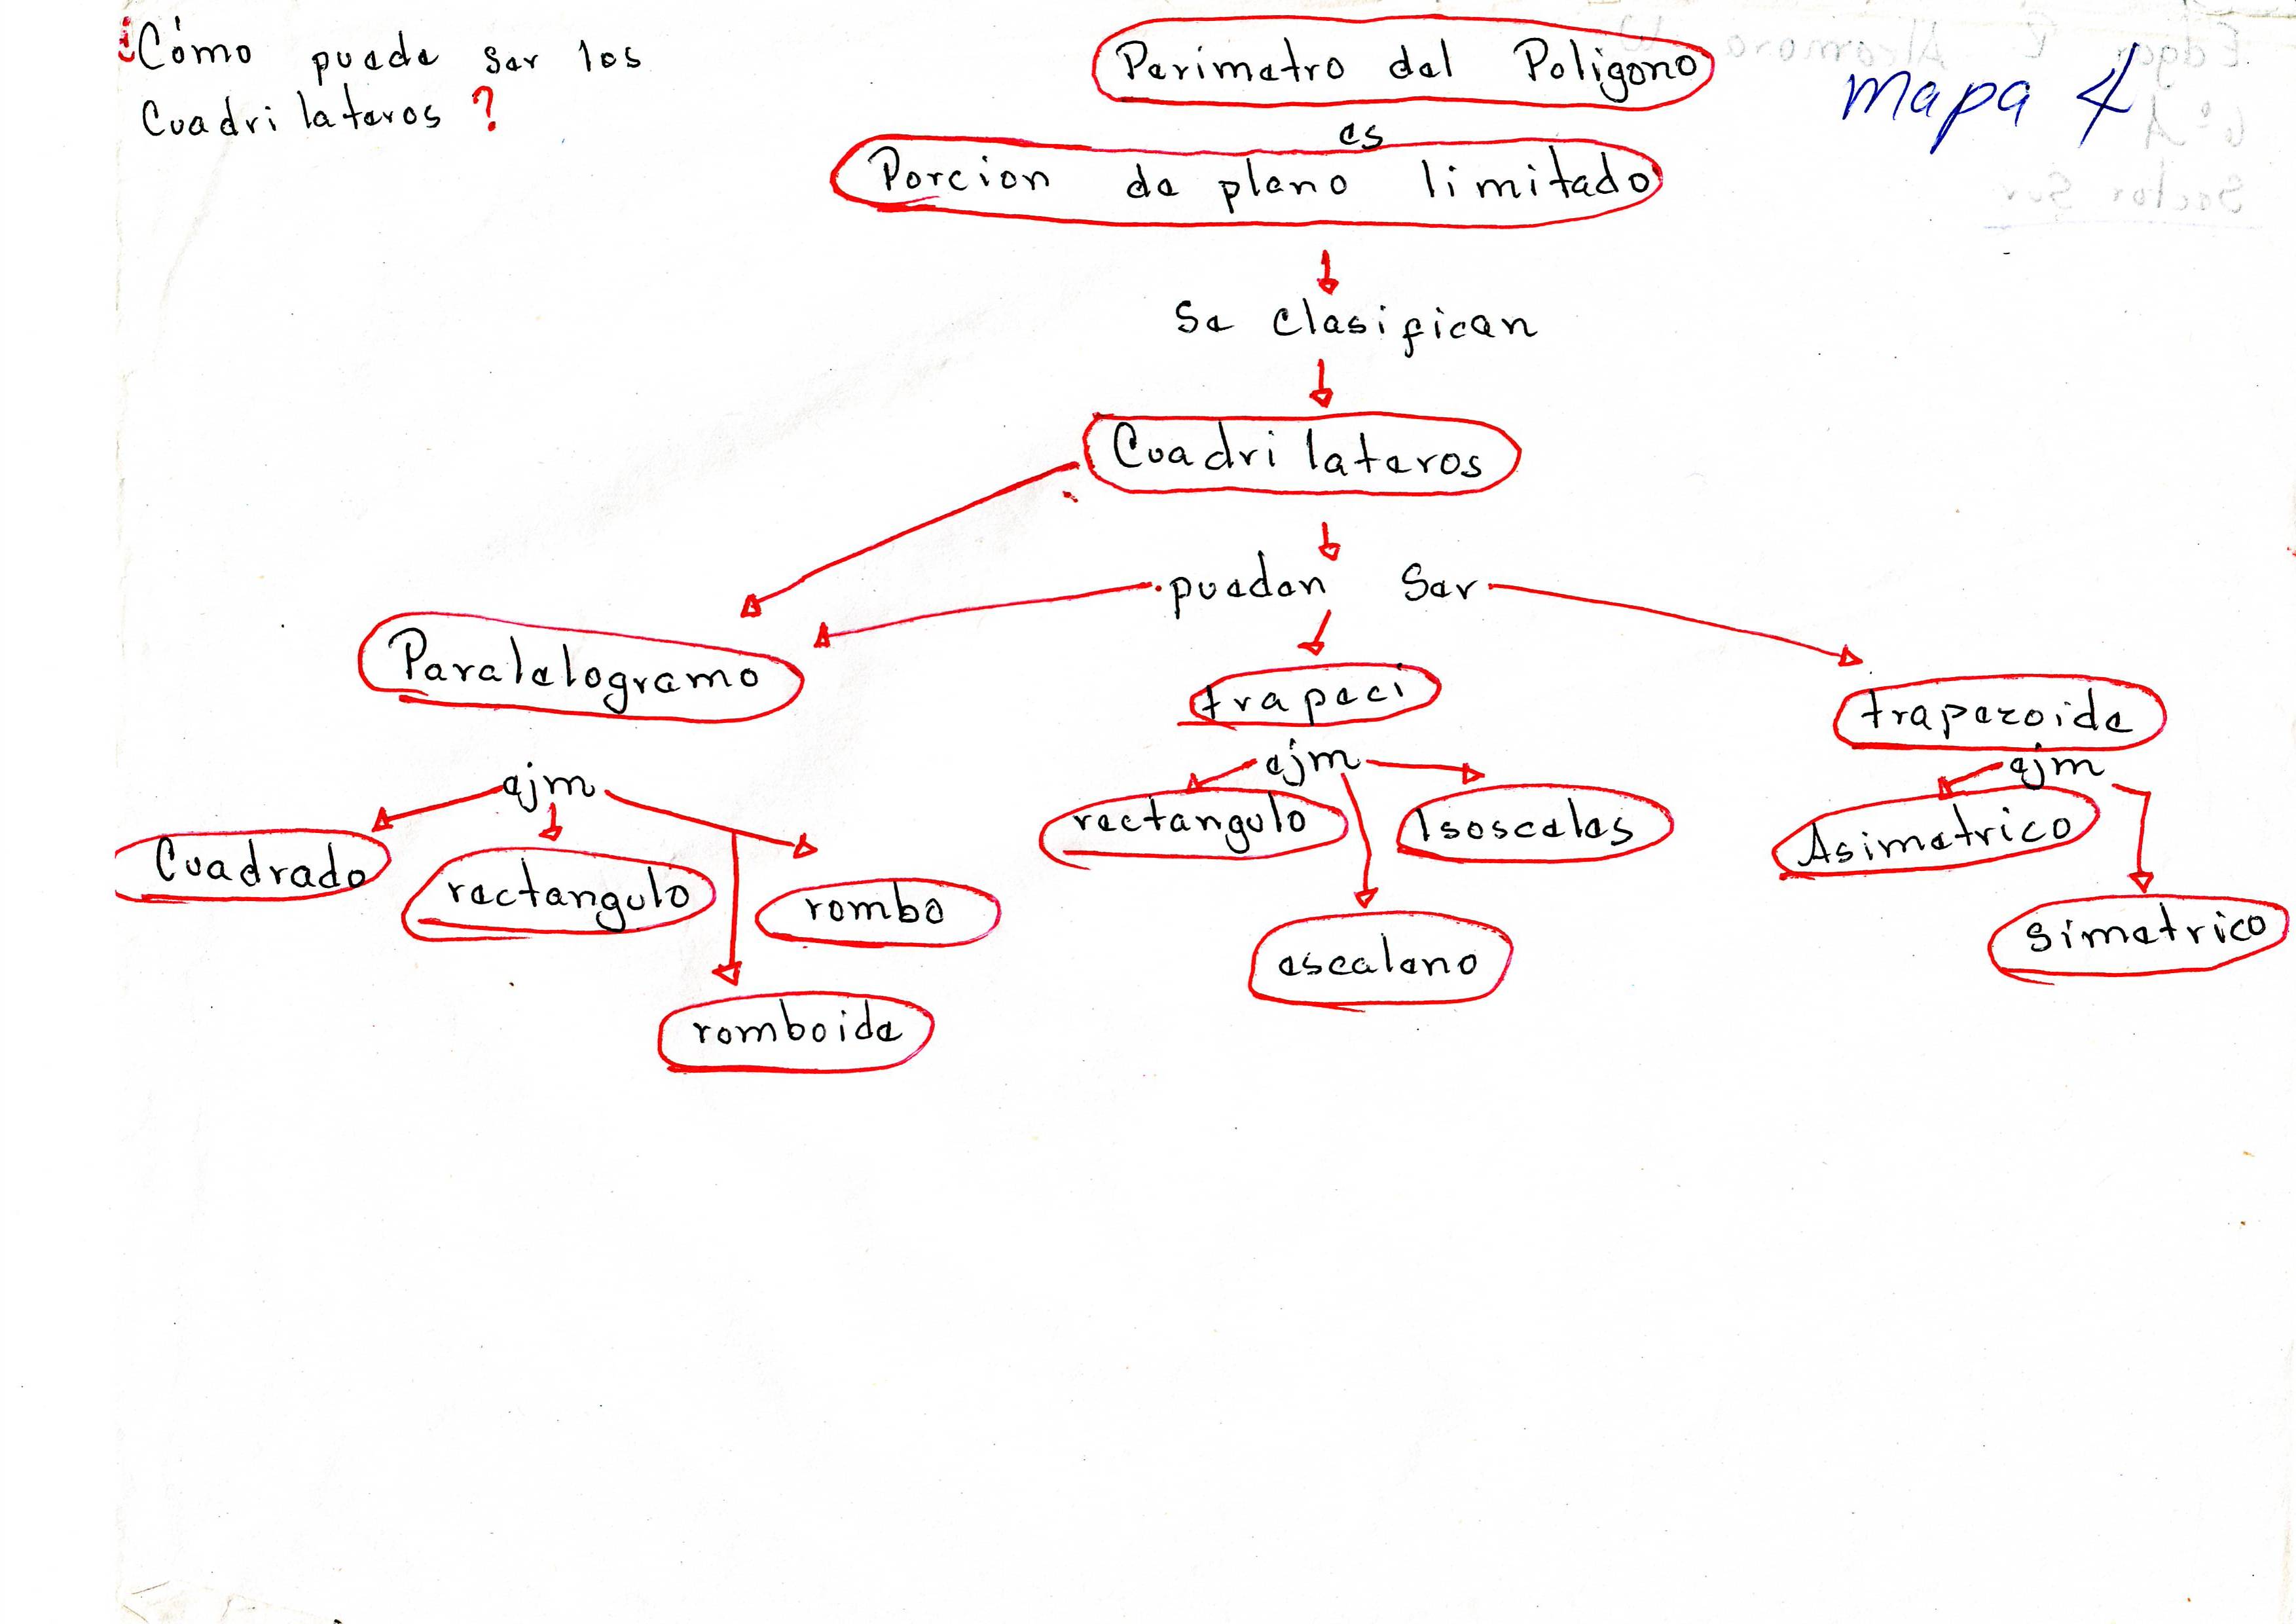 ¿Cómo puede ser los
Cuadri lateros ?
Perimetro del Poligono
mapa 4
es
Porcion de plano limitado
Se clasifican
Cuadri lateros
pueden Ser
Paralelogramo
trapeci
trapezoide
ejm
ejm
ejm
Cuadrado
rectangulo
rombo
romboide
rectangulo
Isosceles
escaleno
Asimetrico
simetrico